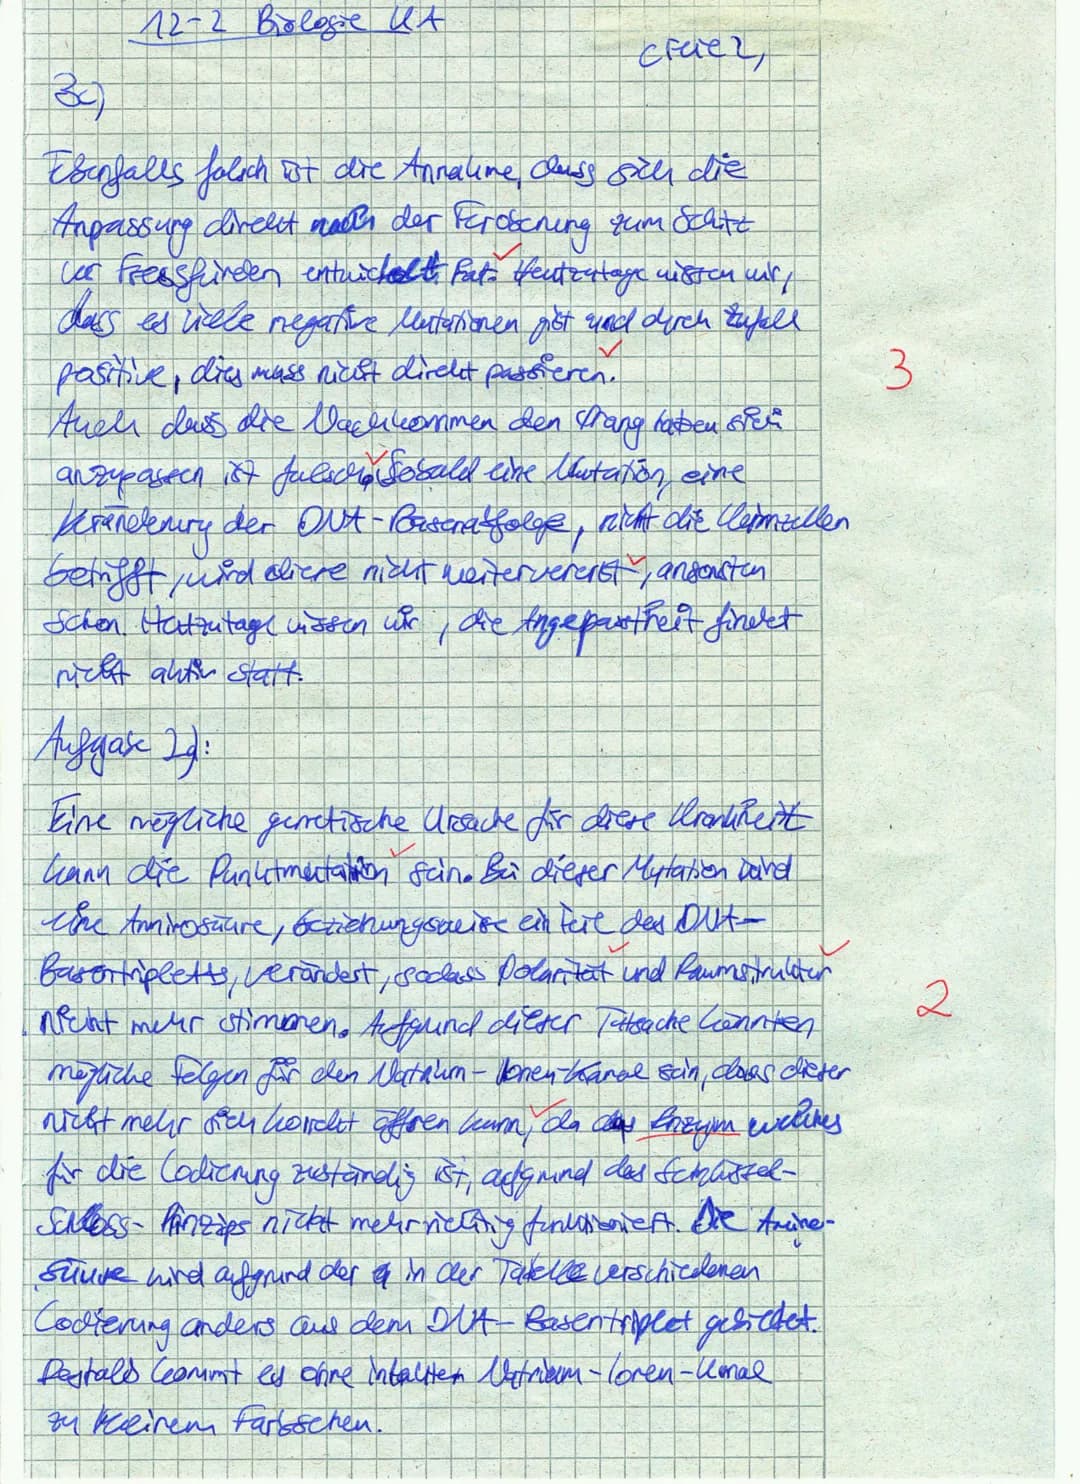 12-2 Biologie KA
3c)
Ebenfalls falsch ist die Annahme, dass sich die
Anpassung direkt nach der Eroberung zum Schutz
vor Fressfeinden entwickelt hat. Heutzutage wissen wir,
dass es viele negative Mutationen gibt und durch Zufall
positive, dies muss nicht direkt passieren.
3
Auch dass die Nachkommen den Drang haben sich
anzupassen ist falsch. Sobald eine Mutation, eine
Veränderung der DNA-Basenabfolge, nicht die Keimzellen
betrifft, wird diese nicht weitervererbt, ansonsten
schon. Heutzutage wissen wir, die Angepasstheit findet
nicht aktiv statt.
Aufgabe 2d):
Eine mögliche genetische Ursache für diese Krankheit
kann die Punktmutation sein. Bei dieser Mutation wird
eine Aminosäure, beziehungsweise ein Teil des DNA-
Basentripletts, verändert, sodass Polarität und Raumstruktur
nicht mehr stimmen. Aufgrund dieser Tatsache könnten
2
mögliche Folgen für den Natrium-Ionen-Kanal sein, dass dieser
nicht mehr sich korrekt öffnen kann, da das Enzym welches
für die Codierung zuständig ist, aufgrund des Schlüssel-
Schloss-Prinzips nicht mehr richtig funktioniert. Die Amino-
säure wird aufgrund der in der Tabelle verschiedenen
Codierung anders aus dem DNA-Basentriplet gebildet.
Deshalb kommt es ohne intakten Natrium-Ionen-Kanal
zu keinem Farbsehen.